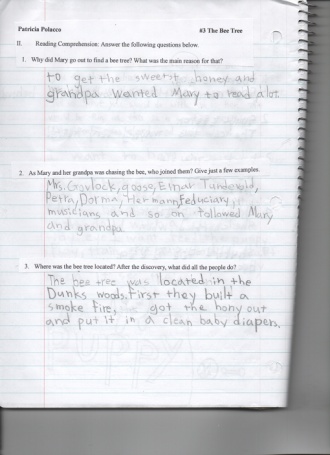 Patricia Polacco #3 The Bee Tree
II. Reading Comprehension: Answer the following questions below.
1. Why did Mary go out to find a bee tree? What was the main reason for that?
to get the sweetit honey and
grandpa wanted Mary to read a lot.
2. As Mary and her grandpa was chasing the bee, who joined them? Give just a few examples.
Mrs. Govlock, goose, Einar
Petra, Dorma, Hermann, Feduciary,
musicians, and so on followed Mary
and grandpa.
3. Where was the bee tree located? After the discovery, what did all the people do?
The bee tree was located in the
Dunks woods. First they built a
smoke fire, got the hony out
and put it in a clean baby diapers.